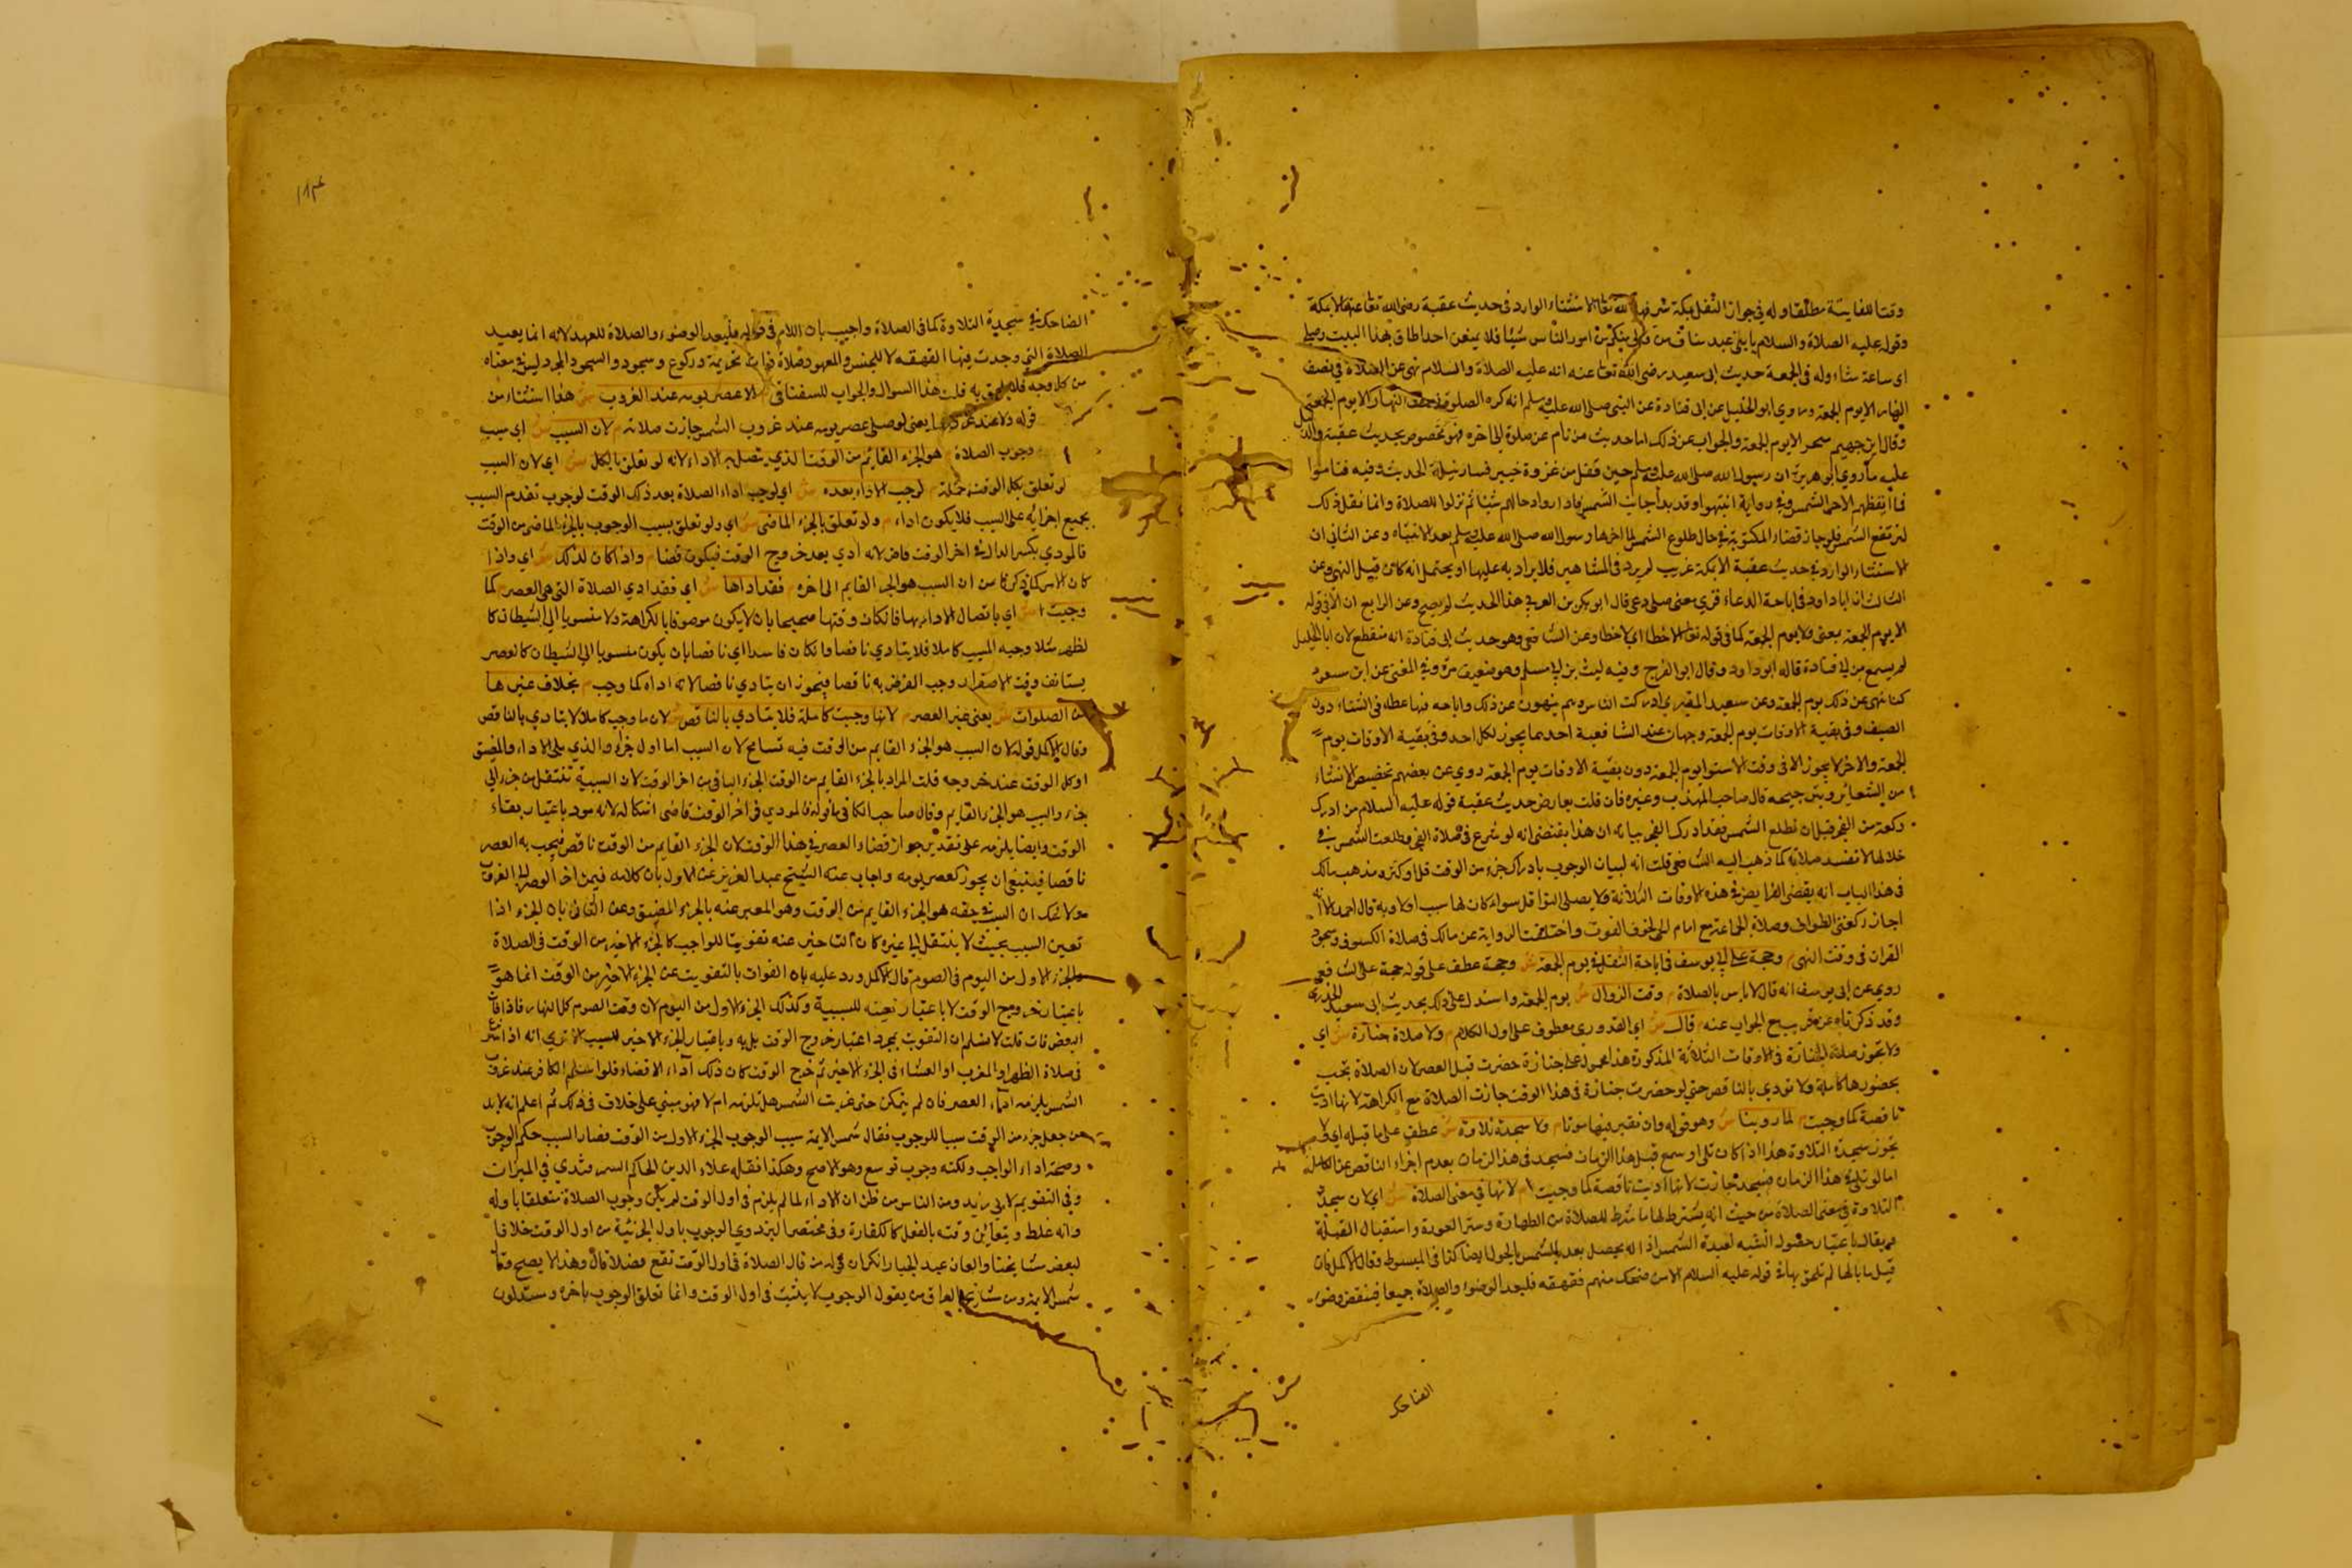 وقتا للفايتة مطلقا وله في جواز النفل بمكة شرفها الله تعالى الاستثناء الوارد في حديث عقبة رضي الله تعالى عنه الا بمكة
وقوله عليه الصلاة والسلام يا بني عبد مناف من ولي منكم من امور الناس شيئا فلا يمنعن احدا طاف بهذا البيت وصلى
اي ساعة شاء وله في الجمعة حديث ابي سعيد رضي الله تعالى عنه انه عليه الصلاة والسلام نهى عن الصلاة في نصف
النهار الا يوم الجمعة وروي ابو الخليل عن ابي قتادة عن النبي صلى الله عليه وسلم انه كره الصلوة نصف النهار الا يوم الجمعة
وقال ان جهنم تسجر الا يوم الجمعة والجواب عن ذلك اما حديث من نام عن صلوة الى اخره فهو مخصوص بحديث عقبة
عليه ما روي ابو هريرة ان رسول الله صلى الله عليه وسلم حين قفل من غزوة خيبر فسار ليلة الحديث وفيه فناموا
فما ايقظهم الا حر الشمس وفي رواية انتبهوا وقد بدا حاجب الشمس فاداروا رحالهم شيئا ثم نزلوا للصلاة وانما فعل ذلك
لترتفع الشمس فلو جاز قضاء المكتوبة في حال طلوع الشمس لما اخرها رسول الله صلى الله عليه وسلم بعد الانتباه وعن الثاني ان
الاستثناء الوارد في حديث عقبة الا بمكة غريب لم يرد في المشاهير فلا يزاد به عليها او يحتمل انه كان قبل النهي وعن
الثالث ان اباداود في اباحة الدعاء قري معنى صلى دعى قال ابو بكر بن العربي هذا الحديث لم يصح وعن الرابع ان الا في قوله
الا يوم الجمعة بمعنى ولا يوم الجمعة كما في قوله تعالى الا خطا اي لا خطا وعن الشافعي وهو حديث ابي قتادة انه منقطع لان ابا الخليل
لم يسمع من ابي قتادة قاله ابو داود وقال ابو الفرج وفيه ليث بن ابي سليم وهو ضعيف مرة وفي المغني عن ابن مسعود
كنا ننهى عن ذلك يوم الجمعة وعن سعيد المقبري ادركت الناس وهم ينهون عن ذلك واباحه فيها عطاء في الشتاء دون
الصيف وفي بقية الاوقات يوم الجمعة وجهان عند الشافعية احدهما يجوز لكل احد وفي بقية الاوقات يوم
الجمعة والاخر لا يجوز الا في وقت الاستوا يوم الجمعة دون بقية الاوقات يوم الجمعة روي عن بعضهم تخصيص الاستثناء
قال صاحب المهذب وغيره فان قلت يعارض حديث عقبة قوله عليه السلام من ادرك
ركعة من الفجر قبل ان تطلع الشمس فقد ادرك الفجر بيانه ان هذا يقتضي انه لو شرع في صلاة الفجر وطلعت الشمس في
خلالها لا تفسد صلاته كما ذهب اليه الشافعي قلت انه لبيان الوجوب بادراك جزء من الوقت قل او كثر ومذهب مالك
في هذا الباب انه يقضي الفرايض في هذه الاوقات الثلاثة ولا يصلى النوافل سواء كان لها سبب او لا وبه قال احمد الا انه
اجاز ركعتي الطواف وصلاة الجماعة مع امام الحي لخوف الفوت واختلفت الرواية عن مالك في صلاة الكسوف وسجود
القران في وقت النهي م وحجة على ابي يوسف في اباحة النفل في يوم الجمعة ش وحجة عطف على قوله حجة على الشافعي
روي عن ابي يوسف انه قال لا باس بالصلاة م وقت الزوال ش يوم الجمعة واستدل على ذلك بحديث ابي سعيد الخدري
وقد ذكرناه عن قريب مع الجواب عنه م قال ش اي القدوري معطوف على اول الكلام م ولا صلاة جنازة ش اي
ولا تجوز صلاة الجنازة في الاوقات الثلاثة المذكورة هذا محمول على جنازة حضرت قبل العصر لان الصلاة تجب
بحضورها كاملة ولا تودي بالناقص حتى لو حضرت جنازة في هذا الوقت جازت الصلاة مع الكراهة لانها اديت
ناقصة كما وجبت م لما روينا ش وهو قوله وان نقبر فيها موتانا م ولا سجدة تلاوة ش عطف على ما قبله اي لا
تجوز سجدة التلاوة هذا اذا كان تلى او سمع قبل هذا الزمان فسجد في هذا الزمان بعدم اجزاء الناقص عن الكامل
اما لو تلى في هذا الزمان فسجد جازت لانها اديت ناقصة كما وجبت م لانها في معنى الصلاة ش اي لان سجدة
التلاوة في معنى الصلاة من حيث انه يشترط لها ما شرط للصلاة من الطهارة وستر العورة واستقبال القبلة
يقال باعتبار حصول التشبه لعبدة الشمس كذا في المبسوط وقال الاكمل فان
قيل ما بالها لم تلحق بها في قوله عليه السلام الا من ضحك منكم قهقهة فليعد الوضوء والصلاة جميعا فينتقض وضوء
الضاحك
الضاحك في سجدة التلاوة كما في الصلاة واجيب بان اللام في قوله فليعد الوضوء والصلاة للعهد لانه انما يعيد
الصلاة التي وجدت فيها القهقهة لا للجنس والمعهود صلاة ذات تحريمة وركوع وسجود والسجود المجرد ليس في معناه
من كل وجه فلا يلحق به قلت هذا السوال والجواب للسغناقي م الا عصر يومه عند الغروب ش هذا استثناء من
قوله ولا عند غروبها يعني لو صلى عصر يومه عند غروب الشمس جازت صلاته م لان السبب ش اي سبب
وجوب الصلاة م هو الجزء القايم من الوقت الذي يتصل به الاداء لانه لو تعلق بالكل ش اي لان السبب
لو تعلق بكل الوقت جملة م لوجب الاداء بعده ش اي لوجب اداء الصلاة بعد ذلك الوقت لوجوب تقدم السبب
بجميع اجزايه على السبب فلا يكون اداء م ولو تعلق بالجزء الماضي ش اي ولو تعلق بسبب الوجوب بالجزء الماضي من الوقت
فالمودي بكسر الدال في اخر الوقت قاض لانه ادي بعد خروج الوقت فيكون قضاء م واذا كان كذلك ش اي واذا
كان الامر كما ذكرنا من ان السبب هو الجزء القايم الى اخره م فقد اداها ش اي فقد ادي الصلاة التي هي العصر م كما
وجبت ش اي باتصال الاداء بها فان كان وقتها صحيحا بان لا يكون موصوفا بالكراهة ولا منسوبا الى الشيطان كا
لظهر مثلا وجبه المسبب كاملا فلا يتادي ناقصا وان كان فاسدا اي ناقصا بان يكون منسوبا الى الشيطان كالعصر
يستانف وقت الاصفرار وجب الفرض به ناقصا فيجوز ان يتادي ناقصا لانه اداه كما وجب م بخلاف غيرها
من الصلوات ش يعني غير العصر م لانها وجبت كاملة فلا يتادي بالناقص ش لان ما وجب كاملا لا يتادي بالناقص
وقال الاكمل قوله لان السبب هو الجزء القايم من الوقت فيه تسامح لان السبب اما اول جزء او الذي يلي الاداء والمضيق
او كل الوقت عند خروجه قلت المراد بالجزء القايم من الوقت الجزء الباقي من اخر الوقت لان السببية تنتقل من جزء الى
جزء والسبب هو الجزء القايم وقال صاحب الكافي ما قوله فالمودي في اخر الوقت قاض اشكاله لانه مود باعتبار بقاء
الوقت وايضا يلزمه على تقدير جواز قضاء العصر في هذا الوقت لان الجزء القايم من الوقت ناقص فيجب به العصر
ناقصا فينبغي ان يجوز كعصر يومه واجاب عنه الشيخ عبد العزيز عن الاول بان كلامه فيمن اخر العصر الى الغروب
ولا شك ان السبب في حقه هو الجزء القايم من الوقت وهو المعبر عنه بالجزء المضيق وعن الثاني بان الجزء اذا
تعين السبب بحيث لا ينتقل الى غيره كان التاخير عنه تفويتا للواجب كالجزء الاخير من الوقت في الصلاة
والجزء الاول من اليوم في الصوم قال الاكمل ورد عليه بان الفوات بالتفويت عن الجزء الاخير من الوقت انما هو
باعتبار خروج الوقت لا باعتبار تعينه للسببية وكذلك الجزء الاول من اليوم لان وقت الصوم كل النهار فاذا فات
البعض فات قلت لا نسلم ان التفويت بمجرد اعتبار خروج الوقت بل به وباعتبار الجزء الاخير للسبب الا تري انه اذا شرع
في صلاة الظهر او المغرب او العشاء في الجزء الاخير ثم خرج الوقت كان ذلك اداء لا قضاء فلو اسلم الكافر عند غروب
الشمس يلزمه اداء العصر فان لم يتمكن حتى غربت الشمس هل تلزمه ام لا فهو مبني على خلاف في ذلك ثم اعلم انه لابد
من جعل جزء من الوقت سببا للوجوب فقال شمس الايمة سبب الوجوب الجزء الاول من الوقت فصار السبب حكم الوجوب
وصحة اداء الواجب ولكنه وجوب توسع وهو الاصح وهكذا نقله علاء الدين الحاكم السمرقندي في الميزان
وفي التقويم لابي زيد ومن الناس من ظن ان الاداء لما لم يلزم في اول الوقت لم يكن وجوب الصلاة متعلقا باوله
وانه غلط ويتعين وقته بالفعل كالكفارة وفي مختصر البزدوي الوجوب باول الجزئية من اول الوقت خلافا
لبعض مشايخنا قال الصلاة في اول الوقت تقع فضلا قال وهذا لا يصح وقال
شمس الايمة ومن مشايخ العراق من يقول الوجوب لا يثبت في اول الوقت وانما تعلق الوجوب باخره ويستدلون